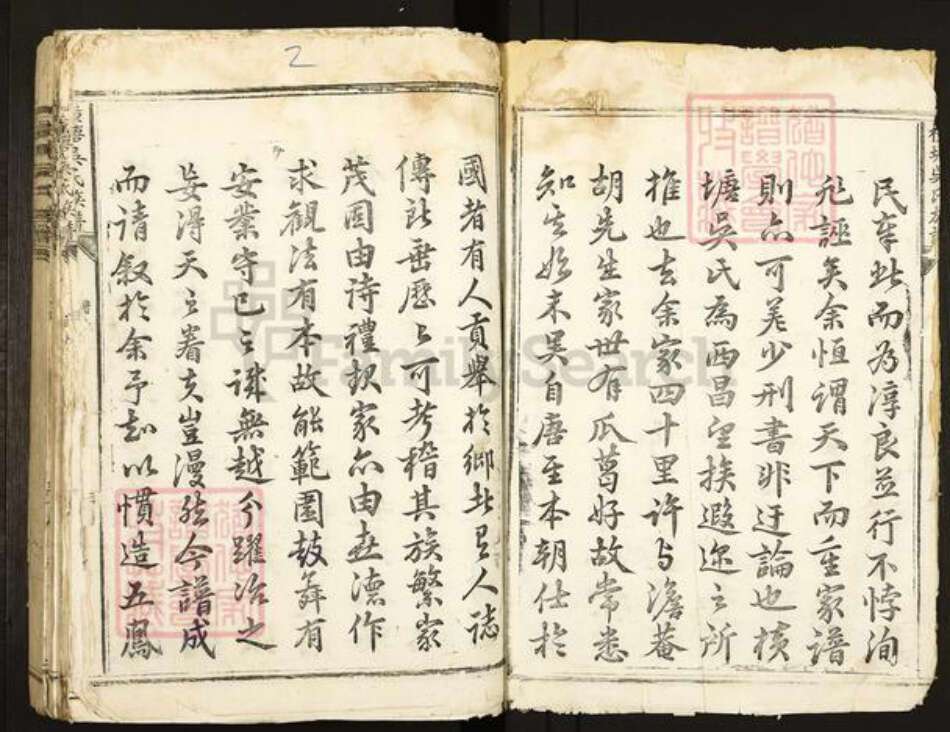 民率此而為淳良並行不悖洵
非誣矣余恒謂天下而重家譜
則亦可羗少刑書非迂論也核
塘吳氏為西昌望族遐迩之所
推也去余家四十里許与澹菴
胡先生家世有瓜葛好故常悉
知其始末吴自唐至本朝仕於
國者有人貢舉於鄉者有人誌
傳所垂歷歷可考稽其族繁家
茂固由詩禮規家亦由世德作
求觀法有本故能範圍鼓舞有
安業守己之謙無越分躍冶之
妄得天之眷夫豈漫然今譜成
而請叙於余予知以慣造五鳳
吳氏族譜
2
FamilySearch